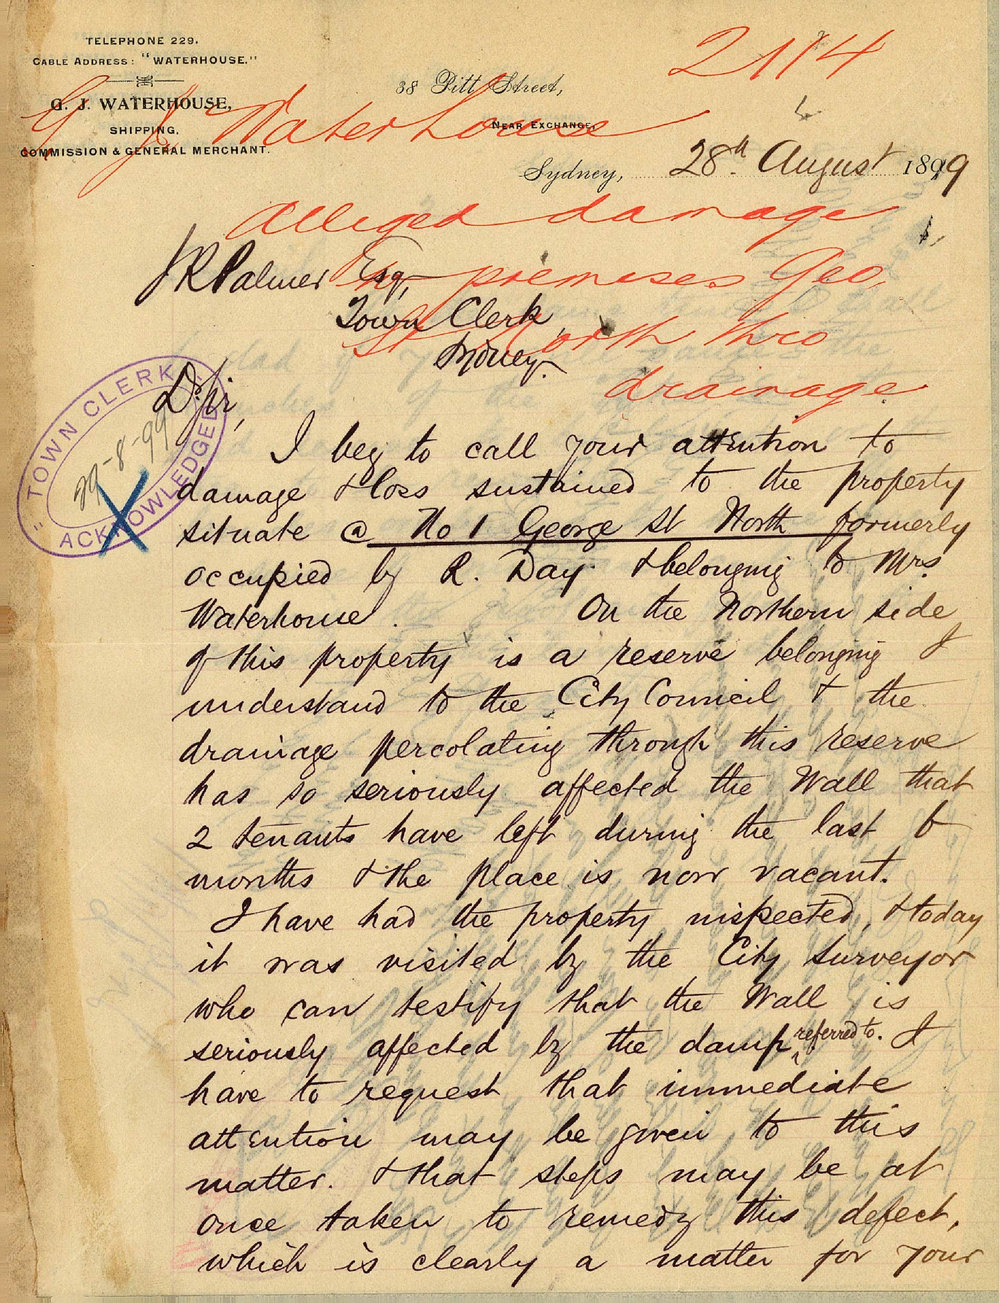 TELEPHONE 229.
CABLE ADDRESS: "WATERHOUSE."
G. J. WATERHOUSE,
SHIPPING,
COMMISSION & GENERAL MERCHANT.
2114
38 Pitt Street,
NEAR EXCHANGE,
Sydney, 28th August 1899
G J Waterhouse
Alleged damage
to premises Geo
St North thro
drainage
J R Palmer Esq,
Town Clerk
Sydney.
TOWN CLERK
29-8-99
ACKNOWLEDGED
Dr Sir,
I beg to call your attention to
damage & loss sustained to the property
situate @ No 1 George St North formerly
occupied by R. Day & belonging to Mrs
Waterhouse. On the Northern side
of this property is a reserve belonging I
understand to the City Council & the
drainage percolating through this reserve
has so seriously affected the Wall that
2 tenants have left during the last 6
months & the place is now vacant.
I have had the property inspected, & today
it was visited by the City Surveyor
who can testify that the Wall is
seriously affected by the damp referred to. I
have to request that immediate
attention may be given to this
matter. & that steps may be at
once taken to remedy this defect,
which is clearly a matter for your